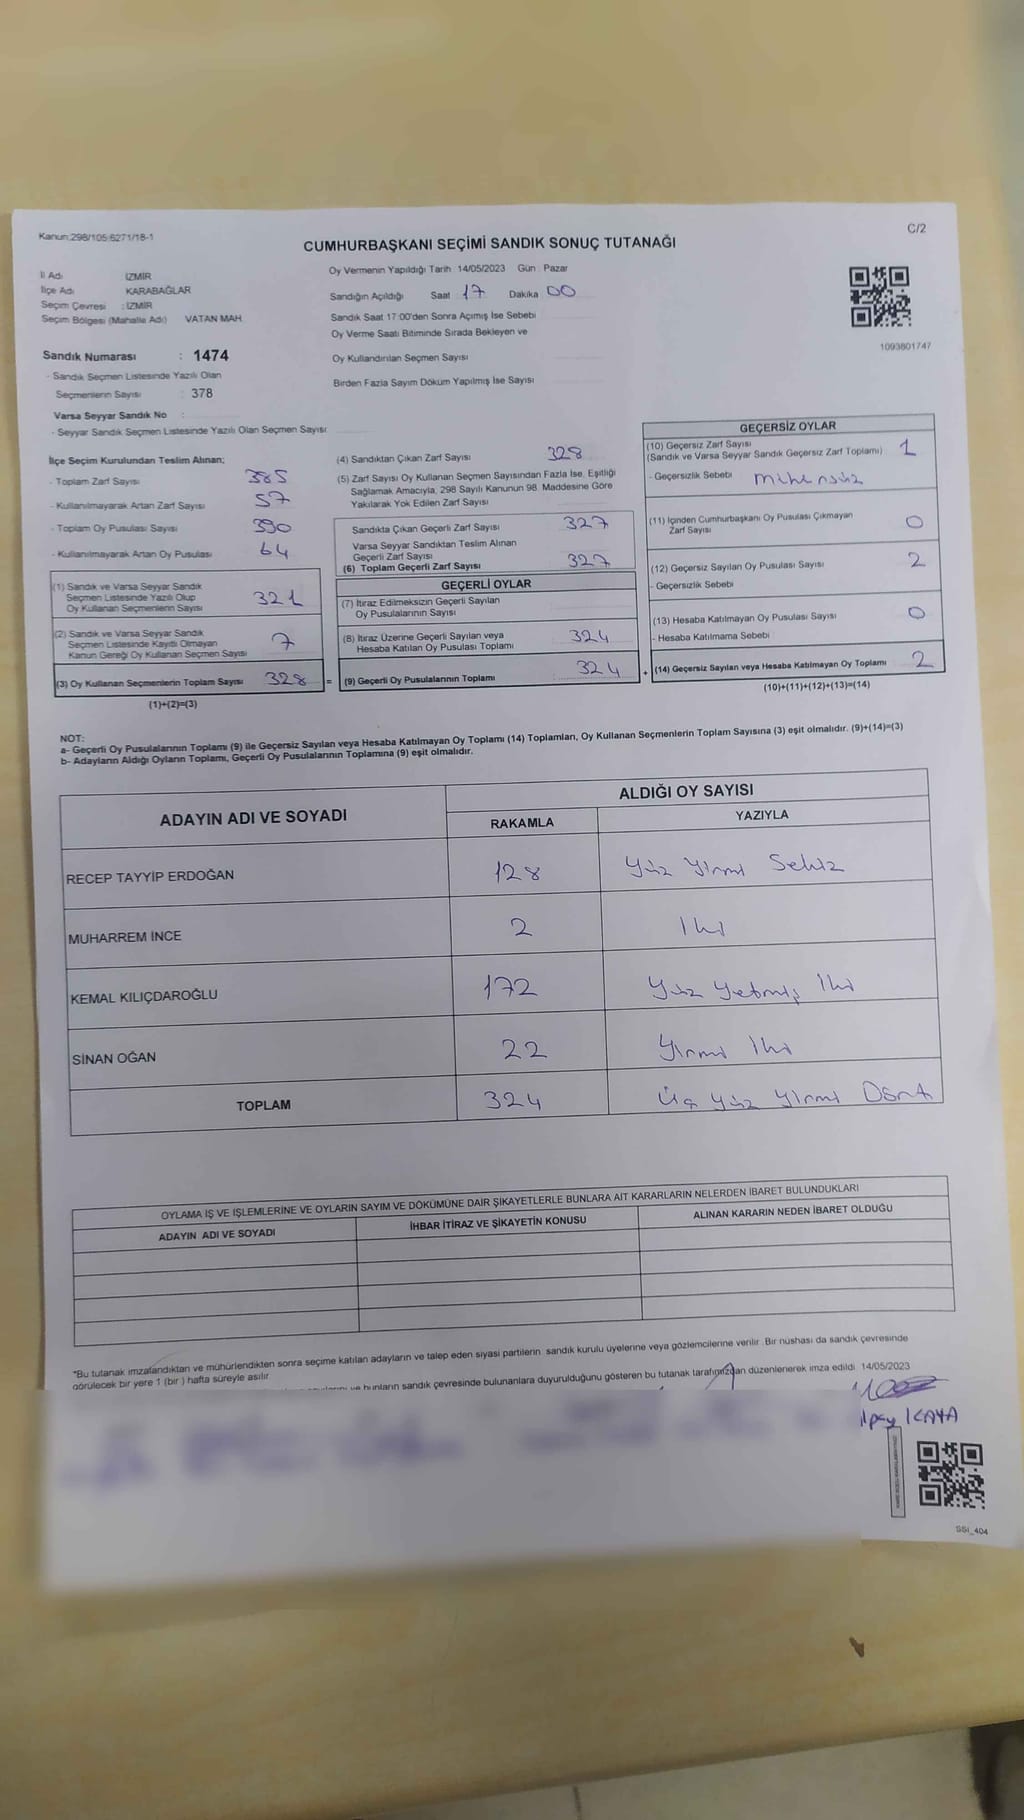 Kanun:298/105;6271/18-1
C/2
CUMHURBAŞKANI SEÇİMİ SANDIK SONUÇ TUTANAĞI
İl Adı İZMİR
İlçe Adı KARABAĞLAR
Seçim Çevresi : İZMİR
Seçim Bölgesi (Mahalle Adı) VATAN MAH.
Oy Vermenin Yapıldığı Tarih 14/05/2023 Gün Pazar
Sandığın Açıldığı Saat 17 Dakika 00
Sandık Saat 17:00'den Sonra Açılmış İse Sebebi
Oy Verme Saati Bitiminde Sırada Bekleyen ve
Oy Kullandırılan Seçmen Sayısı
Birden Fazla Sayım Döküm Yapılmış İse Sayısı
1093801747
Sandık Numarası : 1474
- Sandık Seçmen Listesinde Yazılı Olan
Seçmenlerin Sayısı : 378
Varsa Seyyar Sandık No :
- Seyyar Sandık Seçmen Listesinde Yazılı Olan Seçmen Sayısı:
İlçe Seçim Kurulundan Teslim Alınan;
- Toplam Zarf Sayısı 385
- Kullanılmayarak Artan Zarf Sayısı 57
- Toplam Oy Pusulası Sayısı 390
- Kullanılmayarak Artan Oy Pusulası 64
(1) Sandık ve Varsa Seyyar Sandık
Seçmen Listesinde Yazılı Olup
Oy Kullanan Seçmenlerin Sayısı 321
(2) Sandık ve Varsa Seyyar Sandık
Seçmen Listesinde Kayıtlı Olmayan
Kanun Gereği Oy Kullanan Seçmen Sayısı 7
(3) Oy Kullanan Seçmenlerin Toplam Sayısı 328 =
(1)+(2)=(3)
(4) Sandıktan Çıkan Zarf Sayısı 328
(5) Zarf Sayısı Oy Kullanan Seçmen Sayısından Fazla İse, Eşitliği
Sağlamak Amacıyla, 298 Sayılı Kanunun 98. Maddesine Göre
Yakılarak Yok Edilen Zarf Sayısı
Sandıkta Çıkan Geçerli Zarf Sayısı 327
Varsa Seyyar Sandıktan Teslim Alınan
Geçerli Zarf Sayısı
(6) Toplam Geçerli Zarf Sayısı 327
GEÇERLİ OYLAR
(7) İtiraz Edilmeksizin Geçerli Sayılan
Oy Pusulalarının Sayısı
(8) İtiraz Üzerine Geçerli Sayılan veya
Hesaba Katılan Oy Pusulası Toplamı 324
(9) Geçerli Oy Pusulalarının Toplamı 324 +
GEÇERSİZ OYLAR
(10) Geçersiz Zarf Sayısı
(Sandık ve Varsa Seyyar Sandık Geçersiz Zarf Toplamı) 1
- Geçersizlik Sebebi mühürsüz
(11) İçinden Cumhurbaşkanı Oy Pusulası Çıkmayan
Zarf Sayısı 0
(12) Geçersiz Sayılan Oy Pusulası Sayısı 2
- Geçersizlik Sebebi
(13) Hesaba Katılmayan Oy Pusulası Sayısı 0
- Hesaba Katılmama Sebebi
(14) Geçersiz Sayılan veya Hesaba Katılmayan Oy Toplamı 2
(10)+(11)+(12)+(13)=(14)
NOT:
a- Geçerli Oy Pusulalarının Toplamı (9) ile Geçersiz Sayılan veya Hesaba Katılmayan Oy Toplamı (14) Toplamları, Oy Kullanan Seçmenlerin Toplam Sayısına (3) eşit olmalıdır. (9)+(14)=(3)
b- Adayların Aldığı Oyların Toplamı, Geçerli Oy Pusulalarının Toplamına (9) eşit olmalıdır.
ADAYIN ADI VE SOYADI ALDIĞI OY SAYISI
RAKAMLA YAZIYLA
RECEP TAYYİP ERDOĞAN 128 Yüz Yirmi Sekiz
MUHARREM İNCE 2 İki
KEMAL KILIÇDAROĞLU 172 Yüz Yetmiş İki
SİNAN OĞAN 22 Yirmi İki
TOPLAM 324 Üç Yüz Yirmi Dört
OYLAMA İŞ VE İŞLEMLERİNE VE OYLARIN SAYIM VE DÖKÜMÜNE DAİR ŞİKAYETLERLE BUNLARA AİT KARARLARIN NELERDEN İBARET BULUNDUKLARI
ADAYIN ADI VE SOYADI İHBAR İTİRAZ VE ŞİKAYETİN KONUSU ALINAN KARARIN NEDEN İBARET OLDUĞU
*Bu tutanak imzalandıktan ve mühürlendikten sonra seçime katılan adayların ve talep eden siyasi partilerin sandık kurulu üyelerine veya gözlemcilerine verilir. Bir nüshası da sandık çevresinde
görülecek bir yere 1 (bir) hafta süreyle asılır.
ve bunların sandık çevresinde bulunanlara duyurulduğunu gösteren bu tutanak tarafımızdan düzenlenerek imza edildi. 14/05/2023
KAYA
SSI_404